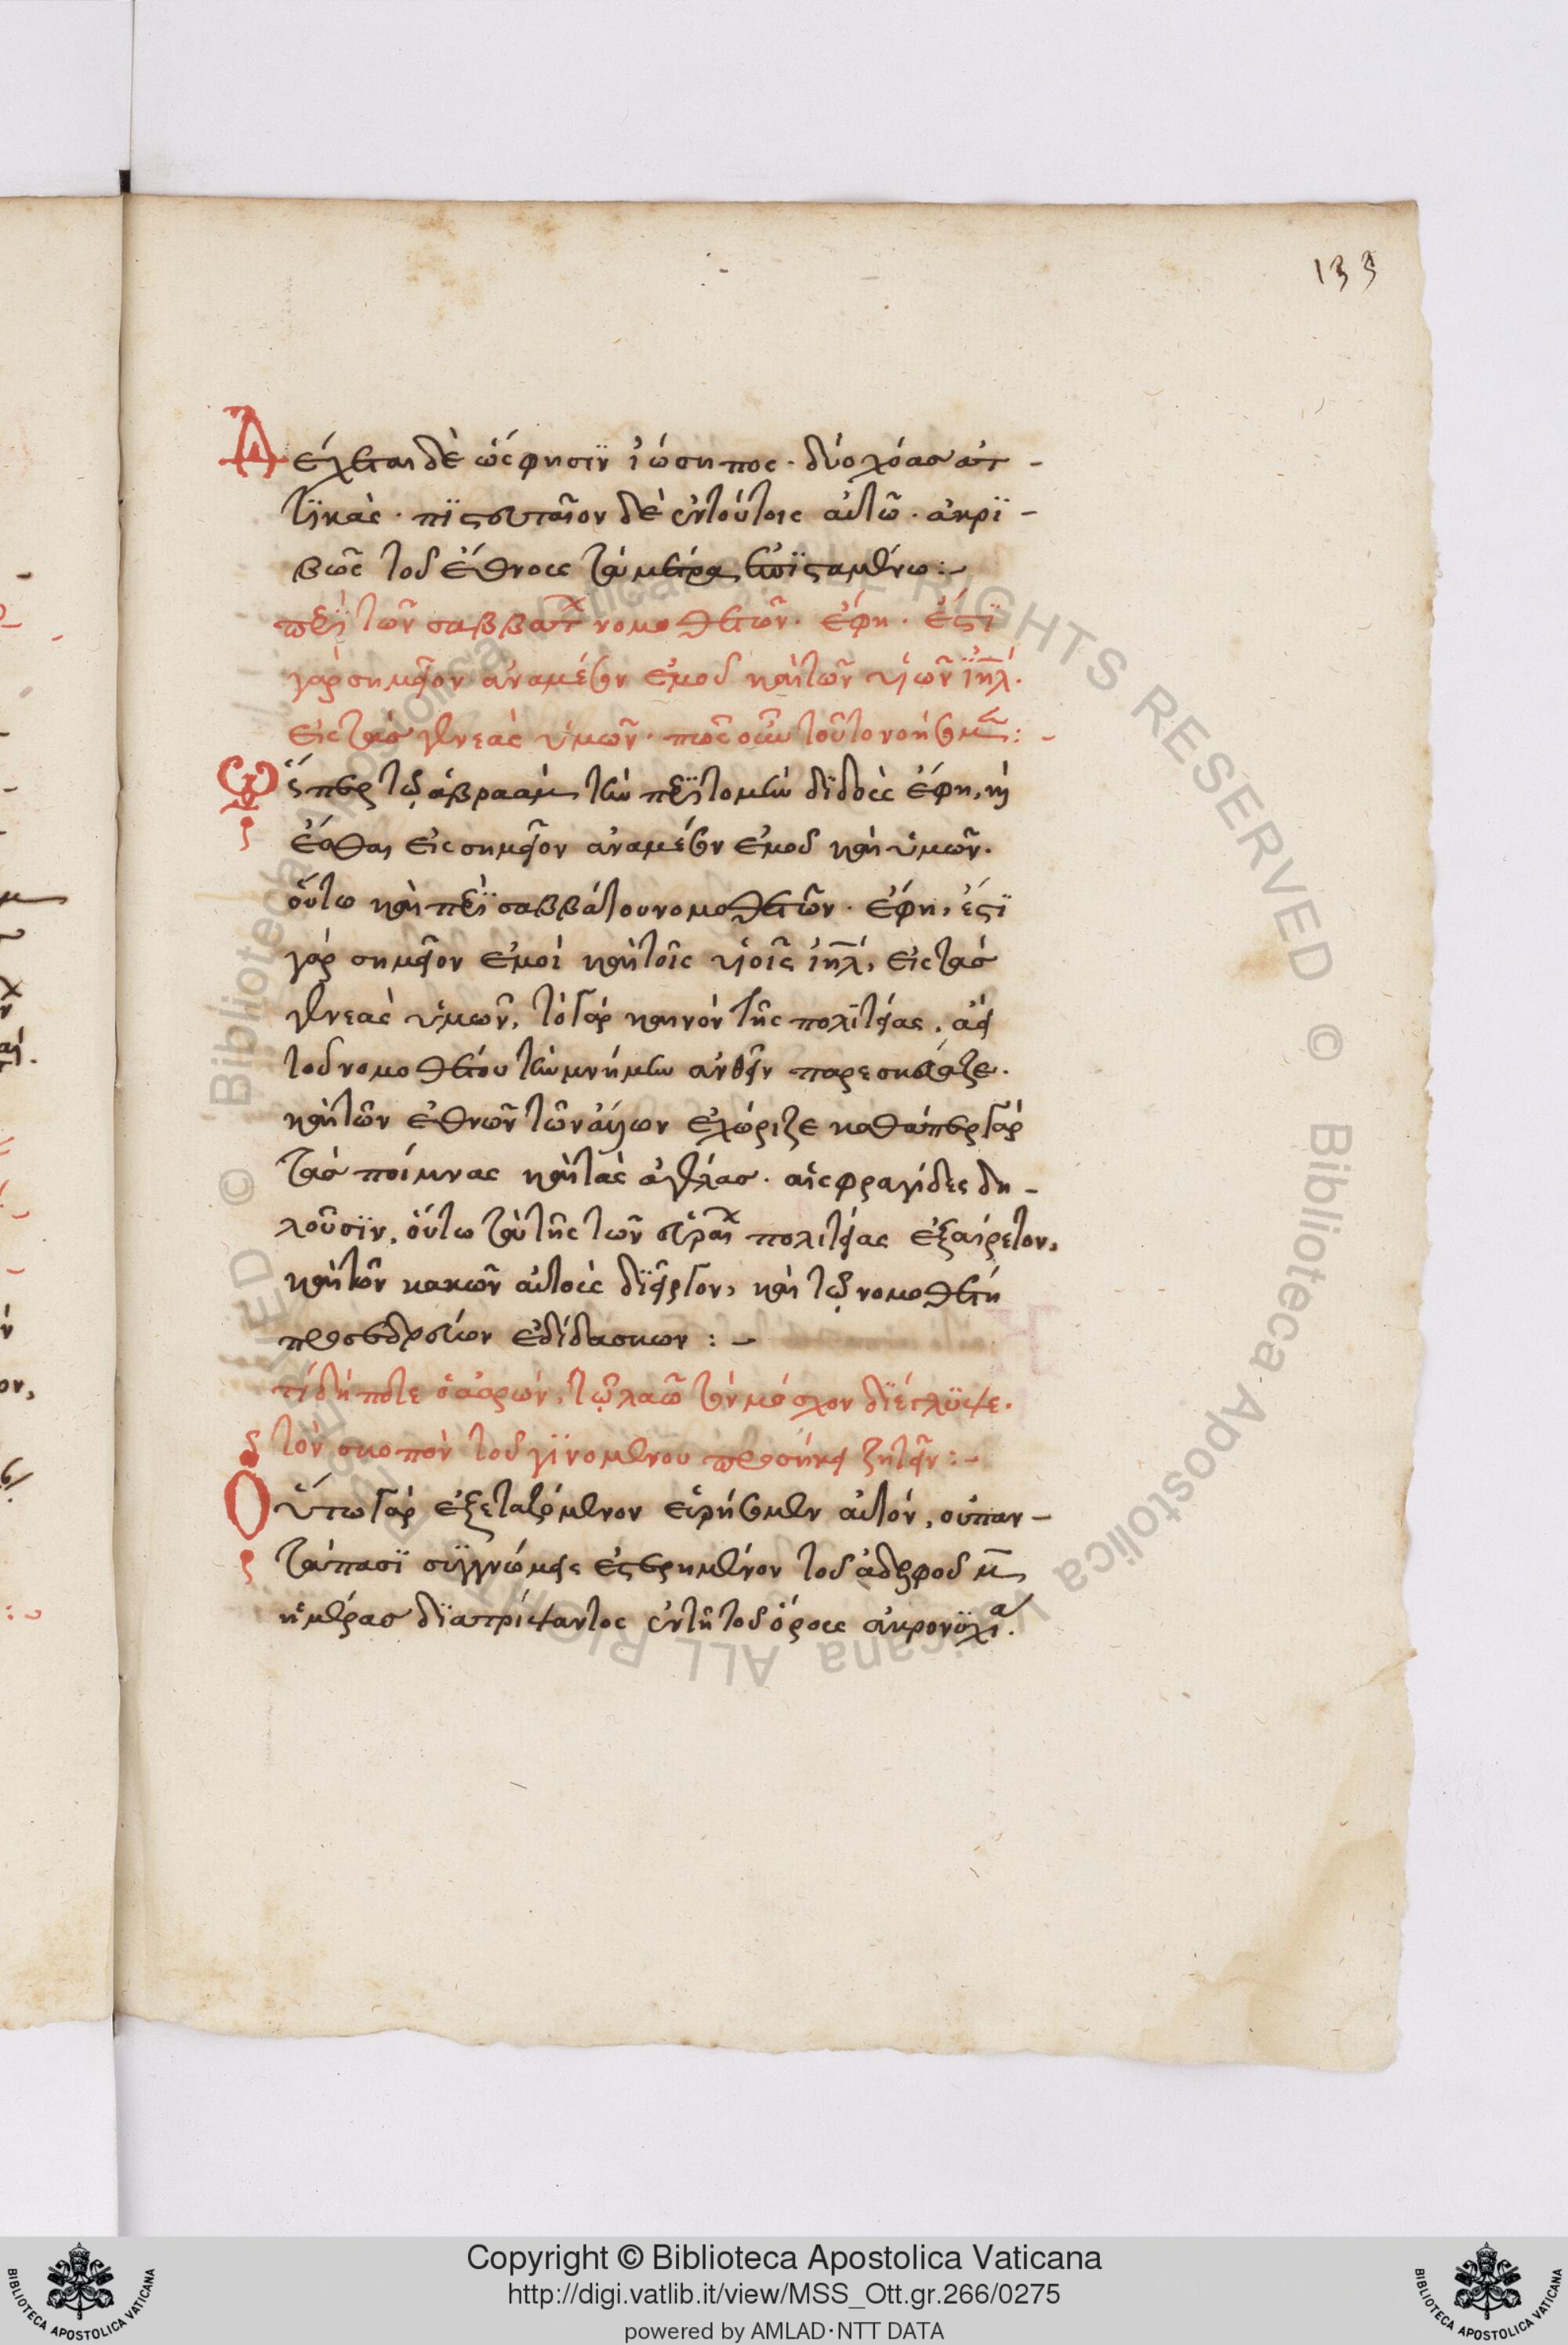 133
Δέχεται δὲ ὡς φησὶν ἰώσηπος· δύο χόας ἀτ-
τικάς· πιστευταῖον δὲ ἐν τούτοις αὐτῶ· ἀκρι-
βῶς τοῦ ἔθνους τὰ μέτρα ἐπισταμένω:-
περὶ τῶν σαββάτων νομοθετῶν· ἔφη· ἔστι
γὰρ σημεῖον ἀναμέσον ἐμοῦ καὶ τῶν υἱῶν ἰηλ.
εἰς τὰς γενεὰς ὑμῶν· πῶς οὖν τοῦτο νοήσομεν:-
Ὥσπερ τῷ ἀβραὰμ τὴν περιτομὴν διδοὺς ἔφη, καὶ
ἔσται εἰς σημεῖον ἀναμέσον ἐμοῦ καὶ ὑμῶν.
οὕτω καὶ περὶ σαββάτου νομοθετῶν· ἔφη, ἔστι
γὰρ σημεῖον ἐμοὶ καὶ τοῖς υἱοῖς ἰηλ, εἰς τὰς
γενεὰς ὑμῶν, τὸ γὰρ καινὸν τῆς πολιτείας, ἀεὶ
τοῦ νομοθέτου τὴν μνήμην ἀνθεῖν παρεσκεύαζε.
καὶ τῶν ἐθνῶν τῶν ἄλλων ἐχώριζε καθάπερ γὰρ
τὰς ποίμνας καὶ τὰς ἀγέλας· αἱ σφραγίδες δη-
λοῦσιν, οὕτω τὸ τῆς τῶν ἑβραίων πολιτείας ἐξαίρετον,
καὶ τῶν κακῶν αὐτοὺς διεῖργον, καὶ τῷ νομοθέτη
προσεδρεύων ἐδίδασκων:-
τί δήποτε ὁ ἀαρών, τῷ λαῶ τὸν μόσχον διέγλυψε.
τὸν σκοπὸν τοῦ γινομένου προσήκει ζητεῖν:-
Οὕτω γὰρ ἐξεταζόμενον εὑρήσομεν αὐτόν, οὐ παν-
τάπασι συγγνώμης ἐστερημένον τοῦ ἀδελφοῦ μ
ἡμέρας διατρίψαντος ἐν τῆ τοῦ ὄρους ἀκρονυχία.
Copyright © Biblioteca Apostolica Vaticana
http://digi.vatlib.it/view/MSS_Ott.gr.266/0275
powered by AMLAD·NTT DATA